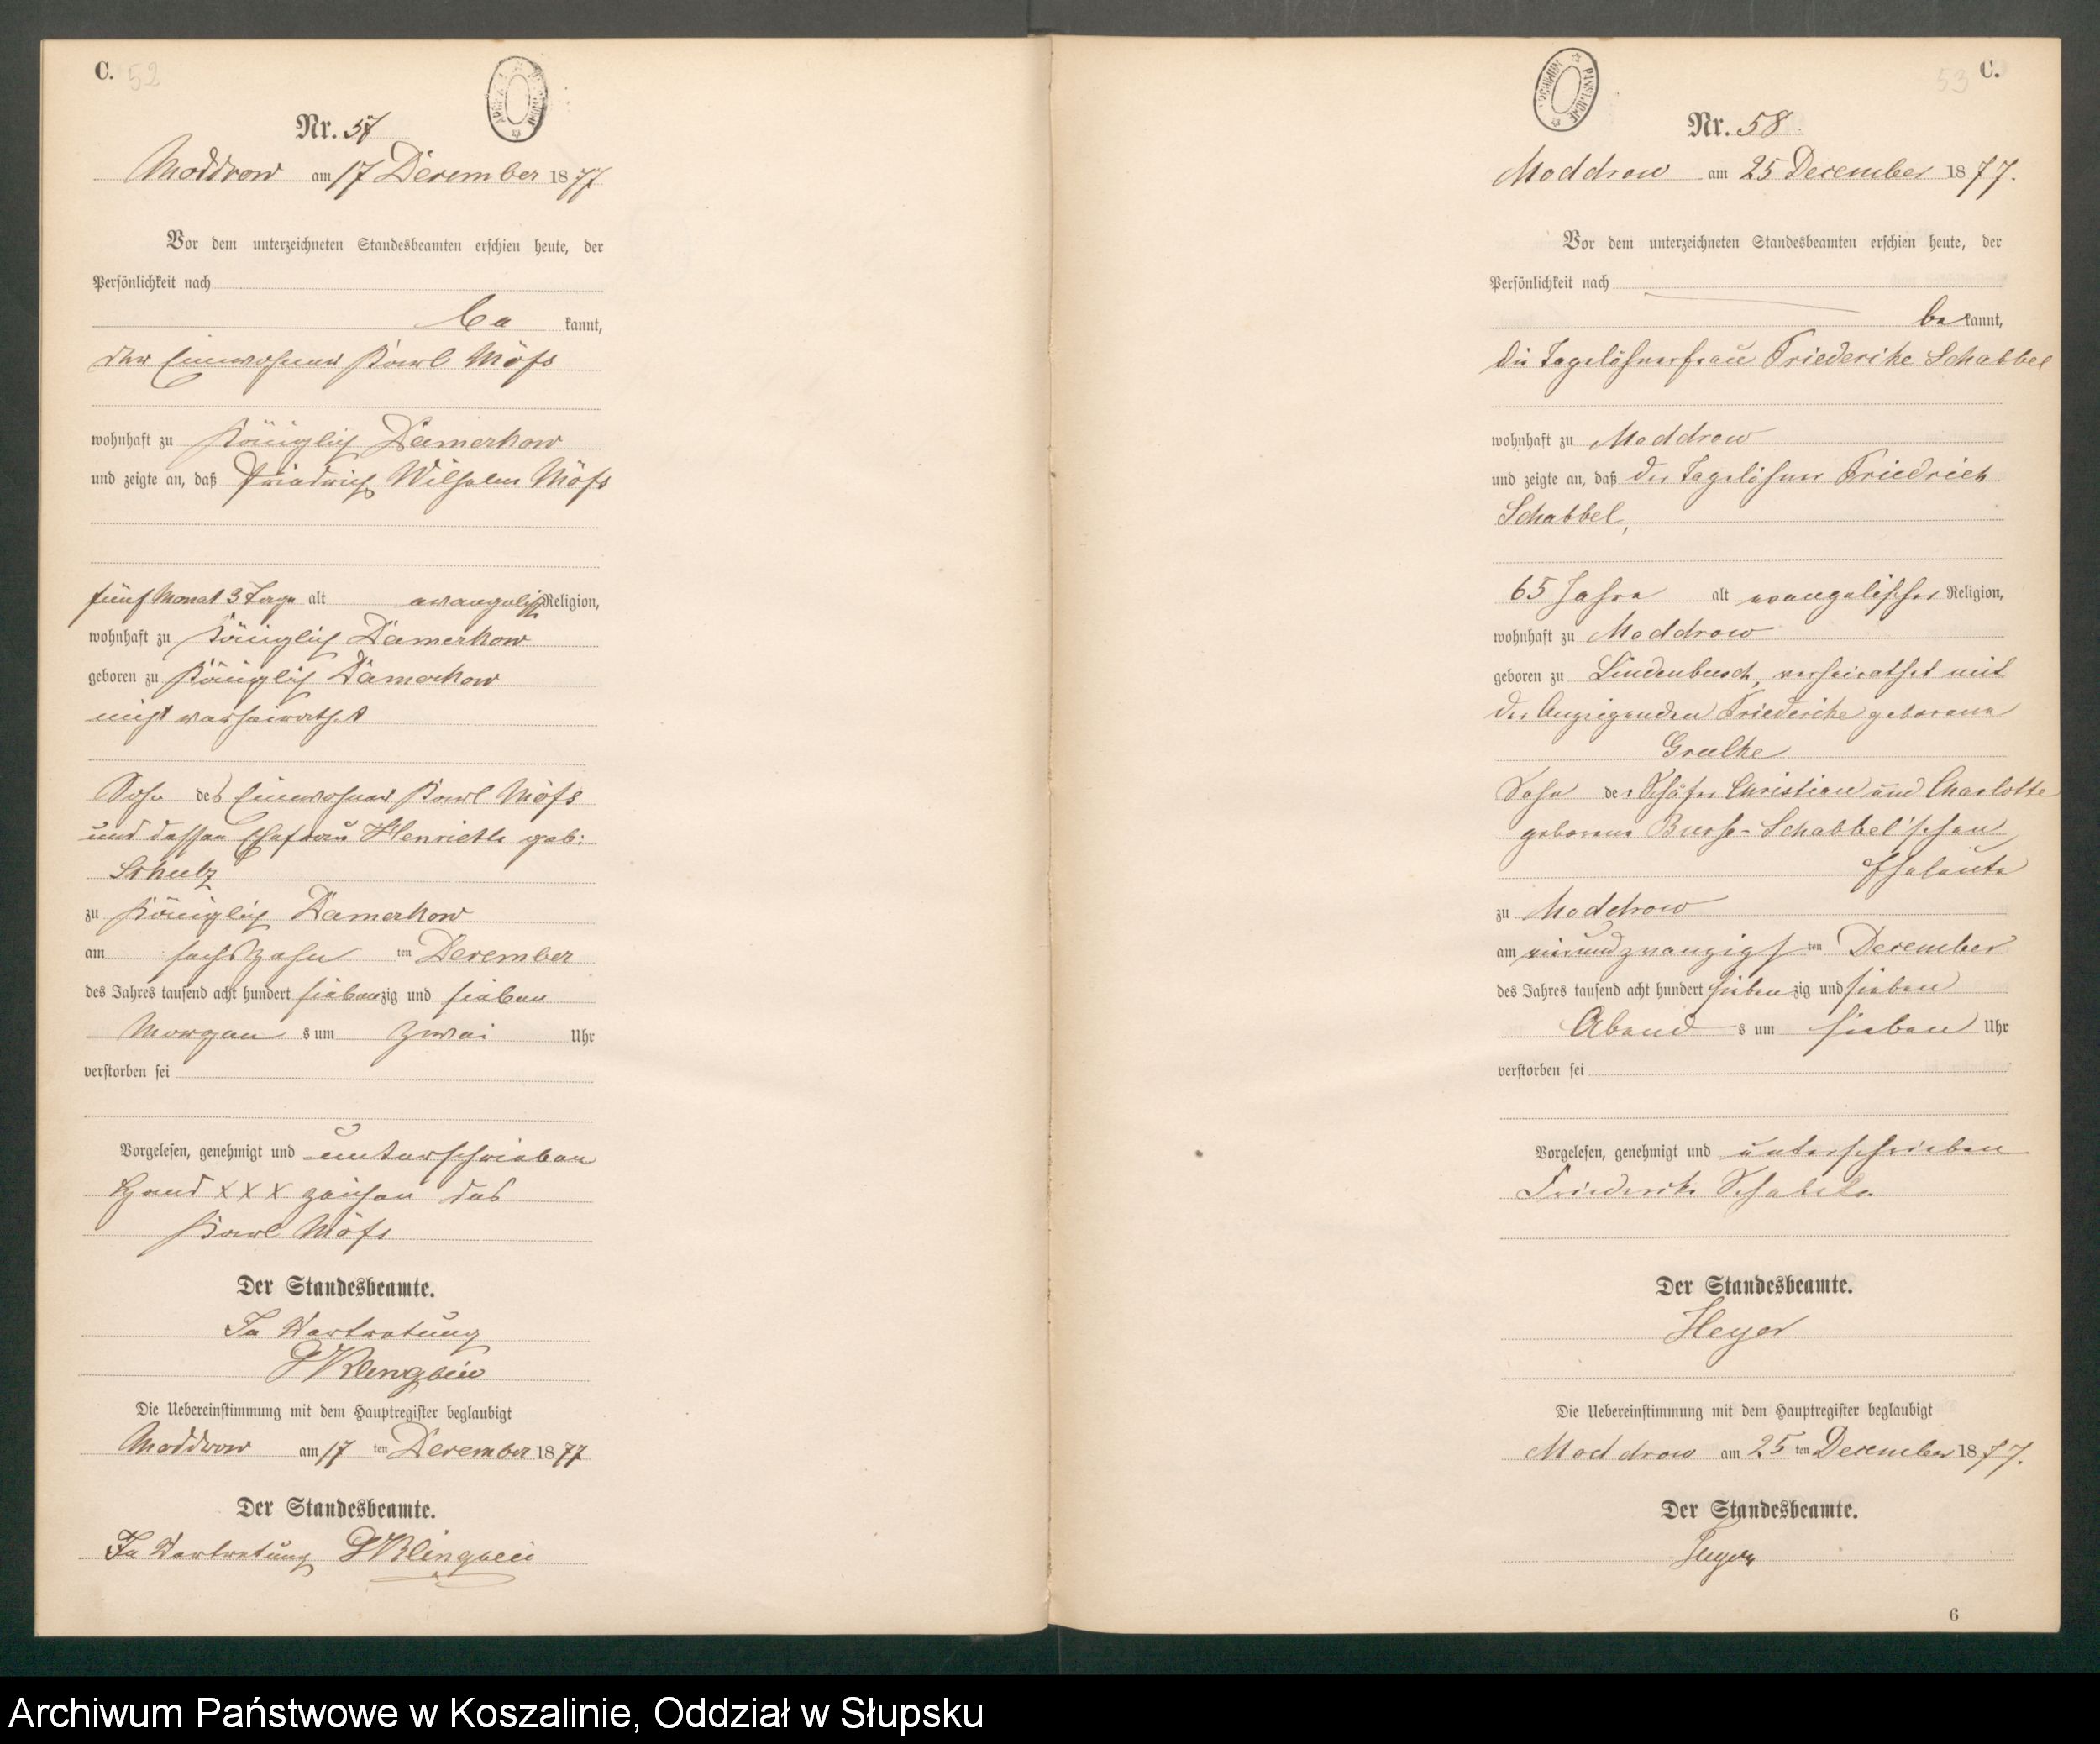 C. 52
Nr. 57
Moddrow am 17 December 1877
Vor dem unterzeichneten Standesbeamten erschien heute, der
Persönlichkeit nach
be kannt,
der Einwohner Karl Möss
wohnhaft zu Königlich Damerkow
und zeigte an, daß Friedrich Wilhelm Möss
fünf Monat 3 Tage alt evangelisch Religion,
wohnhaft zu Königlich Damerkow
geboren zu Königlich Damerkow
nicht verheirathet
Sohn des Einwohner Karl Möss
und dessen Ehefrau Henriette geb:
Schulz
zu Königlich Damerkow
am sechszehn ten December
des Jahres tausend acht hundert siebenzig und sieben
Morgen s um zwei Uhr
verstorben sei
Vorgelesen, genehmigt und unterschrieben
Hand XXX zeichen des
Karl Möss
Der Standesbeamte.
In Vertretung
Klingbeil
Die Uebereinstimmung mit dem Hauptregister beglaubigt
Moddrow am 17 ten December 1877
Der Standesbeamte.
In Vertretung Klingbeil
53 C.
Nr. 58.
Moddrow am 25 December 1877.
Vor dem unterzeichneten Standesbeamten erschien heute, der
Persönlichkeit nach
be kannt,
die Tagelöhnerfrau Friederike Schabbel
wohnhaft zu Moddrow
und zeigte an, daß der Tagelöhner Friedrich
Schabbel,
65 Jahre alt evangelischer Religion,
wohnhaft zu Moddrow
geboren zu Lindenbusch, verheirathet mit
der Anzeigenden Friederike geborene
Grulke
Sohn der Schäfer Christian und Charlotte
geborene Busse-Schabbel'schen
Eheleute
zu Moddrow
am vierundzwanzigs ten December
des Jahres tausend acht hundert sieben zig und sieben
Abend s um sieben Uhr
verstorben sei
Vorgelesen, genehmigt und unterschrieben
Friederike Schabbel
Der Standesbeamte.
Heyer
Die Uebereinstimmung mit dem Hauptregister beglaubigt
Moddrow am 25 ten December 1877.
Der Standesbeamte.
Heyer
6
Archiwum Państwowe w Koszalinie, Oddział w Słupsku